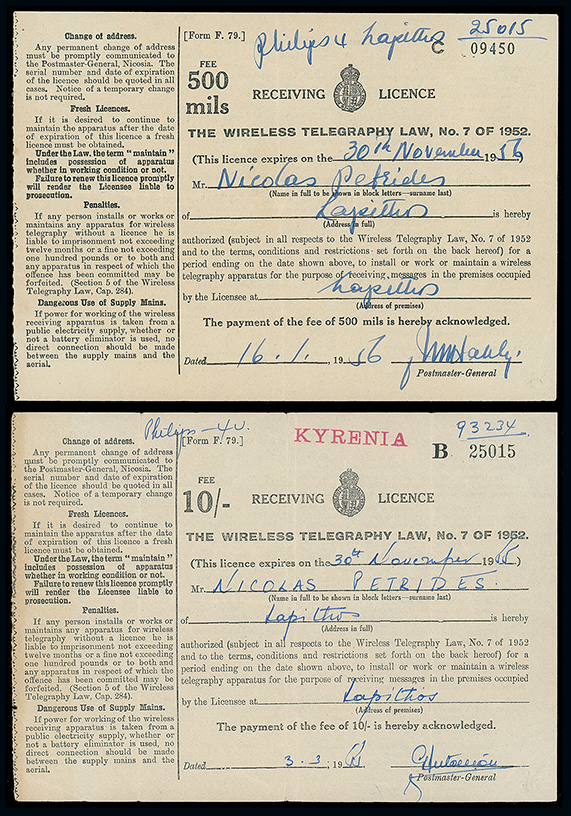 Change of address.
Any permanent change of address
must be promptly communicated to
the Postmaster-General, Nicosia. The
serial number and date of expiration
of the licence should be quoted in all
cases. Notice of a temporary change
is not required.
Fresh Licences.
If it is desired to continue to
maintain the apparatus after the date
of expiration of this licence a fresh
licence must be obtained.
Under the Law, the term "maintain"
includes possession of apparatus
whether in working condition or not.
Failure to renew this licence promptly
will render the Licensee liable to
prosecution.
Penalties.
If any person installs or works or
maintains any apparatus for wireless
telegraphy without a licence he is
liable to imprisonment not exceeding
twelve months or a fine not exceeding
one hundred pounds or to both and
any apparatus in respect of which the
offence has been committed may be
forfeited. (Section 5 of the Wireless
Telegraphy Law, Cap. 284).
Dangerous Use of Supply Mains.
If power for working of the wireless
receiving apparatus is taken from a
public electricity supply, whether or
not a battery eliminator is used, no
direct connection should be made
between the supply mains and the
aerial.
[Form F. 79.]
Philips 4 Lapithos
25015
C 09450
FEE
500
mils
RECEIVING LICENCE
THE WIRELESS TELEGRAPHY LAW, No. 7 OF 1952.
(This licence expires on the 30th November 1956)
Mr. Nicolas Petrides
(Name in full to be shown in block letters—surname last)
of Lapithos is hereby
(Address in full)
authorized (subject in all respects to the Wireless Telegraphy Law, No. 7 of 1952
and to the terms, conditions and restrictions set forth on the back hereof) for a
period ending on the date shown above, to install or work or maintain a wireless
telegraphy apparatus for the purpose of receiving messages in the premises occupied
by the Licensee at Lapithos
(Address of premises)
The payment of the fee of 500 mils is hereby acknowledged.
Dated 16.1., 1956
Postmaster-General
Change of address.
Any permanent change of address
must be promptly communicated to
the Postmaster-General, Nicosia. The
serial number and date of expiration
of the licence should be quoted in all
cases. Notice of a temporary change
is not required.
Fresh Licences.
If it is desired to continue to
maintain the apparatus after the date
of expiration of this licence a fresh
licence must be obtained.
Under the Law, the term "maintain"
includes possession of apparatus
whether in working condition or not.
Failure to renew this licence promptly
will render the Licensee liable to
prosecution.
Penalties.
If any person installs or works or
maintains any apparatus for wireless
telegraphy without a licence he is
liable to imprisonment not exceeding
twelve months or a fine not exceeding
one hundred pounds or to both and
any apparatus in respect of which the
offence has been committed may be
forfeited. (Section 5 of the Wireless
Telegraphy Law, Cap. 284).
Dangerous Use of Supply Mains.
If power for working of the wireless
receiving apparatus is taken from a
public electricity supply, whether or
not a battery eliminator is used, no
direct connection should be made
between the supply mains and the
aerial.
Philips — 4v.
[Form F. 79.]
KYRENIA
93234
B 25015
FEE
10/-
RECEIVING LICENCE
THE WIRELESS TELEGRAPHY LAW, No. 7 OF 1952.
(This licence expires on the 30th November 19)
Mr. NICOLAS PETRIDES.
(Name in full to be shown in block letters—surname last)
of Lapithos is hereby
(Address in full)
authorized (subject in all respects to the Wireless Telegraphy Law, No. 7 of 1952
and to the terms, conditions and restrictions set forth on the back hereof) for a
period ending on the date shown above, to install or work or maintain a wireless
telegraphy apparatus for the purpose of receiving messages in the premises occupied
by the Licensee at Lapithos
(Address of premises)
The payment of the fee of 10/- is hereby acknowledged.
Dated 3.3, 19
Postmaster-General